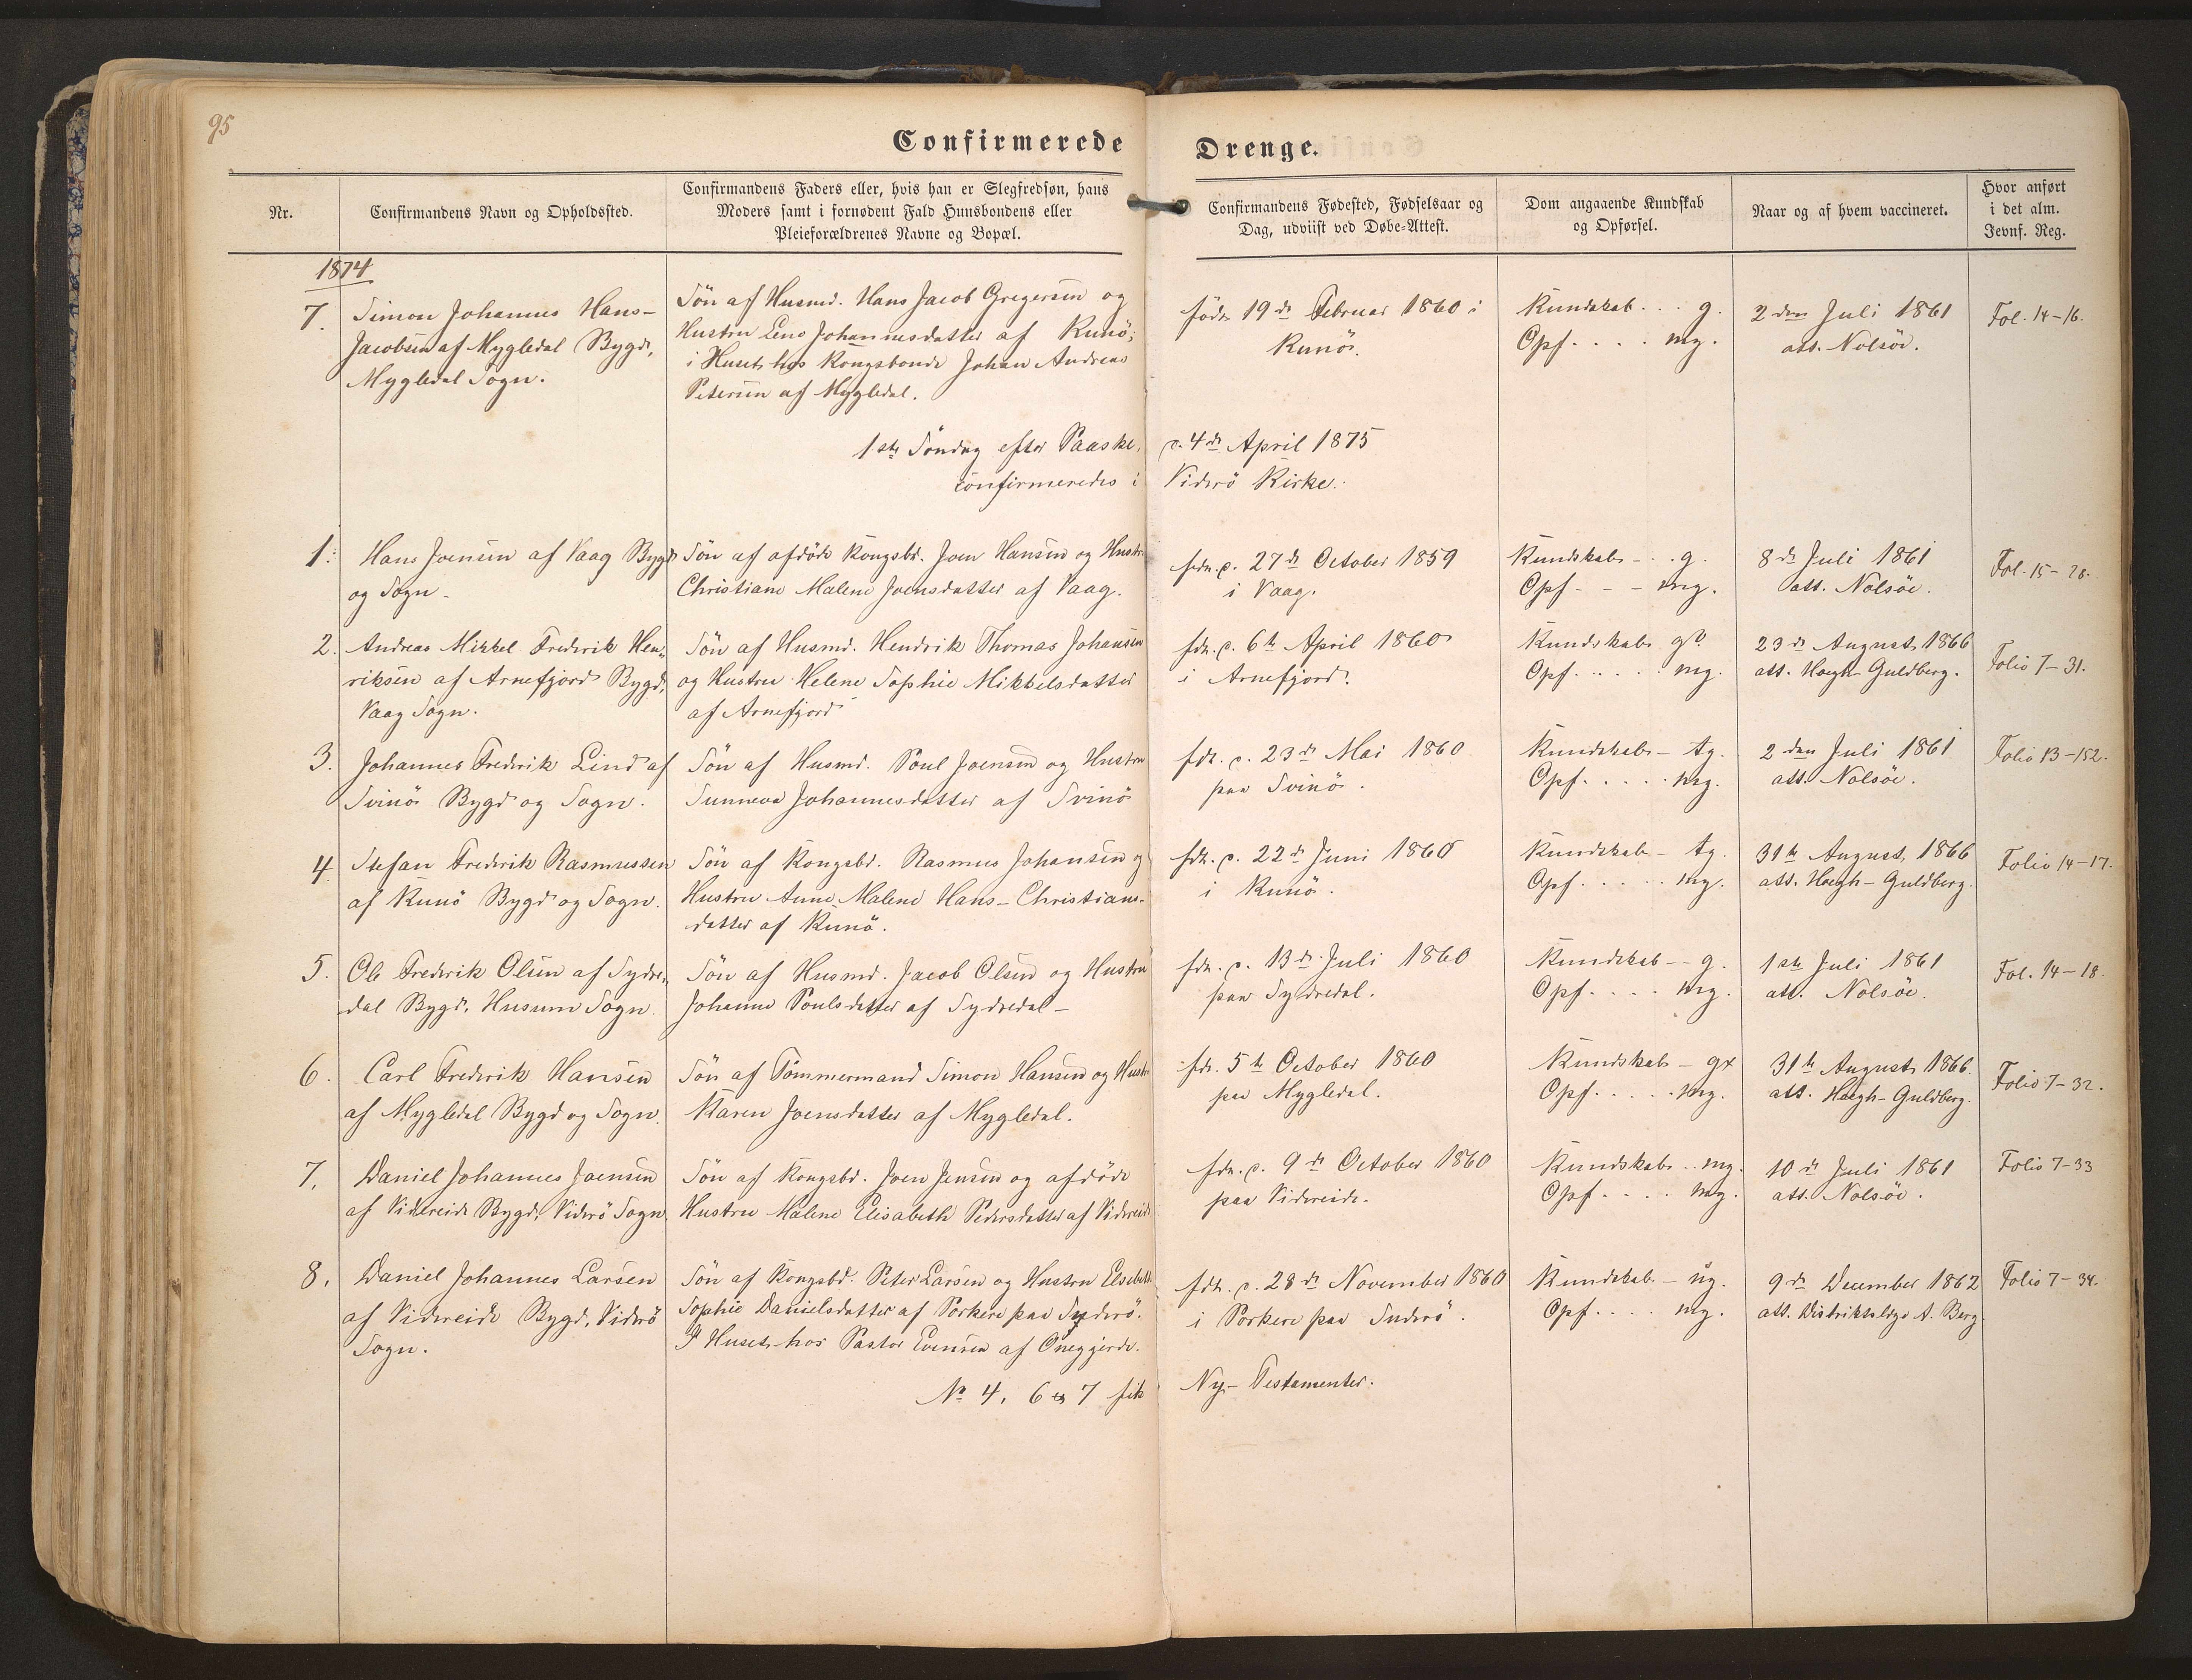 95
Confirmerede Drenge.
Nr.
Confirmandens Navn og Opholdssted.
Confirmandens Faders eller, hvis han er Slegfredsøn, hans
Moders samt i fornødent Fald Huusbondens eller
Pleieforældrenes Navne og Bopæl.
Confirmandens Fødested, Fødselsaar og
Dag, udviist ved Døbe-Attest.
Dom angaaende Kundskab
og Opførsel.
Naar og af hvem vaccineret.
Hvor anført
i det alm.
Jevnf. Reg.
1874
7.
Simon Johannes Hans-
Jacobsen af Mygledal Bygd,
Mygledal Sogn.
Søn af Husmd. Hans Jacob Gregersen og
Hustru Lene Johannesdatter af Kunö;
i Huset hos Kongsbonde Johan Andreas
Petersen af Mygledal.
föd. 19de Februar 1860 i
Kunö.
Kundskab . . . g.
Opf. . . . . mg.
2den Juli 1861
att. Nolsöe.
Fol. 14-16.
1ste Söndag efter Paaske, d. 4de April 1875
confirmeredes i Viderö Kirke.
1.
Hans Joensen af Vaag Bygd
og Sogn.
Søn af afdöde Kongsbd. Joen Hansen og Hustru
Christiane Malene Joensdatter af Vaag.
fdn. d. 27de October 1859
i Vaag.
Kundskab - . . g.
Opf - - - mg.
8de Juli 1861
att. Nolsöe.
Fol. 15-28.
2.
Andreas Mikkel Frederik Hen-
riksen af Arnefjord Bygd,
Vaag Sogn.
Søn af Husmd. Hendrik Thomas Johansen
og Hustru Helene Sophie Mikkelsdatter
af Arnefjord
fdn. d. 6te April 1860
i Arnefjord.
Kundskab
Opf. . . . . . mg.
23de August 1866
att. Høegh-Guldberg.
Folio 7-31.
3.
Johannes Frederik Lind af
Svinö Bygd og Sogn.
Søn af Husmd. Poul Joensen og Hustru
Sunneva Johannesdatter af Svinö
fdt. d. 23de Mai 1860
paa Svinö.
Kundskab - tg.
Opf. . . . . mg.
2den Juli 1861
att. Nolsöe.
Folio 13-152.
4
Stefan Frederik Rasmussen
af Kunö Bygd og Sogn.
Søn af Kongsbd. Rasmus Johansen og
Hustru Anne Malene Hans-Christians-
datter af Kunö.
fdt. d. 22de Juni 1860
i Kunö.
Kundskab - tg.
Opf. . . . . mg.
31te August 1866
att. Høegh-Guldberg.
Folio 14-17.
5.
Ole Frederik Olsen af Sydre-
dal Bygd, Husum Sogn.
Søn af Husmd. Jacob Olsen og Hustru
Johanne Poulsdatter af Sydredal -
fdn. d. 13de Juli 1860
paa Sydredal.
Kundskab - - g.
Opf. . . . mg.
1ste Juli 1861
att. Nolsöe.
Fol. 14-18.
6.
Carl Frederik Hansen
af Mygledal Bygd og Sogn.
Søn af Tömmermand Simon Hansen og Hustru
Karen Joensdatter af Mygledal.
fdt. 5te October 1860
paa Mygledal.
Kundskab - g+
Opf. . . . . mg.
31te August 1866.
att. Høegh-Guldberg.
Folio 7-32.
7.
Daniel Johannes Joensen
af Videreide Bygd, Viderö Sogn.
Søn af Kongsbd. Joen Jensen og afdöde
Hustru Malene Elisabeth Pedersdatter af Videreide
fdn. d. 9de October 1860
paa Videreide.
Kundskab . . mg.
Opf. . . . mg.
10de Juli 1861
att. Nolsöe.
Folio 7-33
8.
Daniel Johannes Larsen
af Videreide Bygd, Viderö
Sogn.
Søn af Kongsbd. Peter Larsen og Hustru Elsebeth
Sophie Danielsdatter af Porkere paa Syderö.
I Huset hos Pastor Evensen af Öneggjerde.
fdt. d. 28de November 1860
i Porkere paa Suderö.
Kundskab - ug.
Opf. . . . mg.
9de December 1862
att. Distriktslæge A. Berg
Folio 7-34.
No 4, 6 og 7 fik Ny-Testamenter.